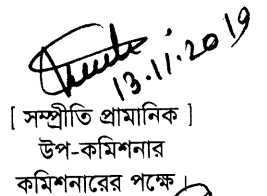 13.11.2019
[ সম্প্রীতি প্রামানিক ]
উপ-কমিশনার
কমিশনারের পক্ষে।